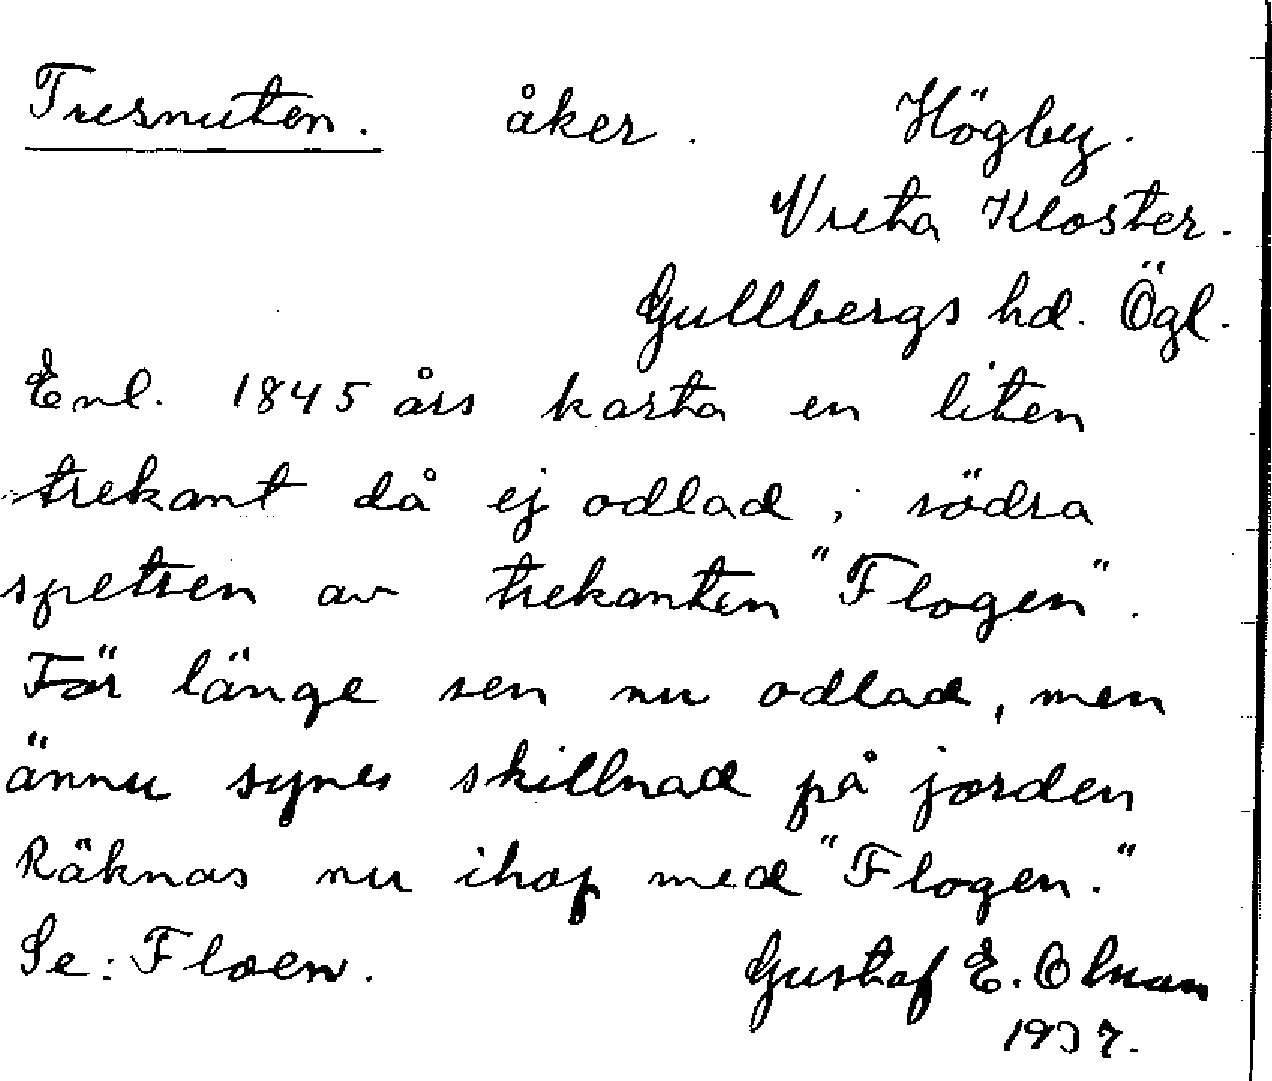 Tresnuten. åker. Högby.
Vreta Kloster.
Gullbergs hd. Ögl.
Enl. 1845 års karta en liten
trekant då ej odlad, i södra
spetsen av trekanten "Flogen".
För länge sen nu odlad, men
ännu synes skillnad på jorden
Räknas nu ihop med "Flogen."
Se: Floen. Gustaf E. Olman
1937.